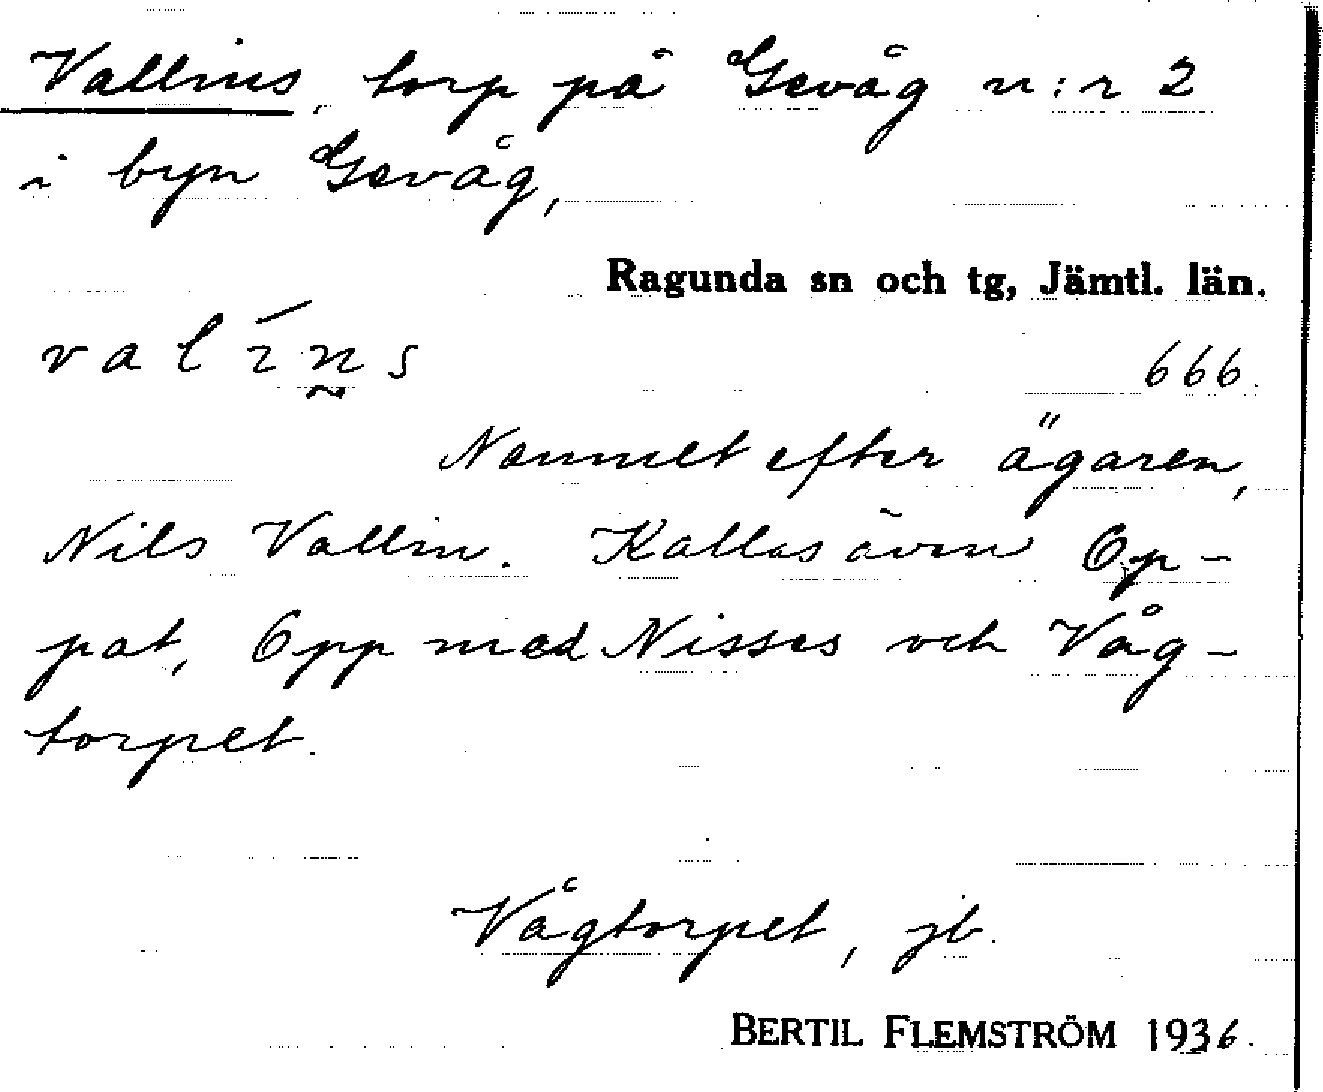 Vallins, torp på Gevåg n:r 2
i byn Gevåg,
Ragunda sn och tg, Jämtl. län.
valíns
666.
Namnet efter ägaren,
Nils Vallin. Kallas även Op-
pat, Opp med Nisses och Våg-
torpet.
Vågtorpet, jb.
BERTIL FLEMSTRÖM 1936.